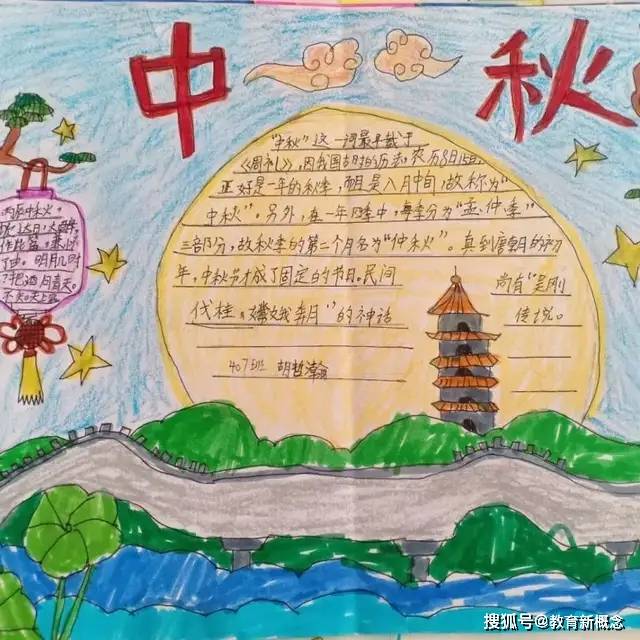 中秋
"中秋"这一词最早载于
《周礼》,因我国古时的历法,农历8月15日,
正好是一年的秋季,而且是八月中旬,故称为"
中秋"。另外,在一年四季中,每季分为"孟,仲,季"
三部分,故秋季的第二个月名为"仲秋"。直到唐朝的初
年,中秋节才成了固定的节日。民间
尚有"吴刚
伐桂,嫦娥奔月"的神话
传说。
407班 胡哲
丙辰中秋。
欢达旦,大醉,
作此篇,兼怀
子由。明月几时
有?把酒问青天。
不知天上宫
搜狐号@教育新概念